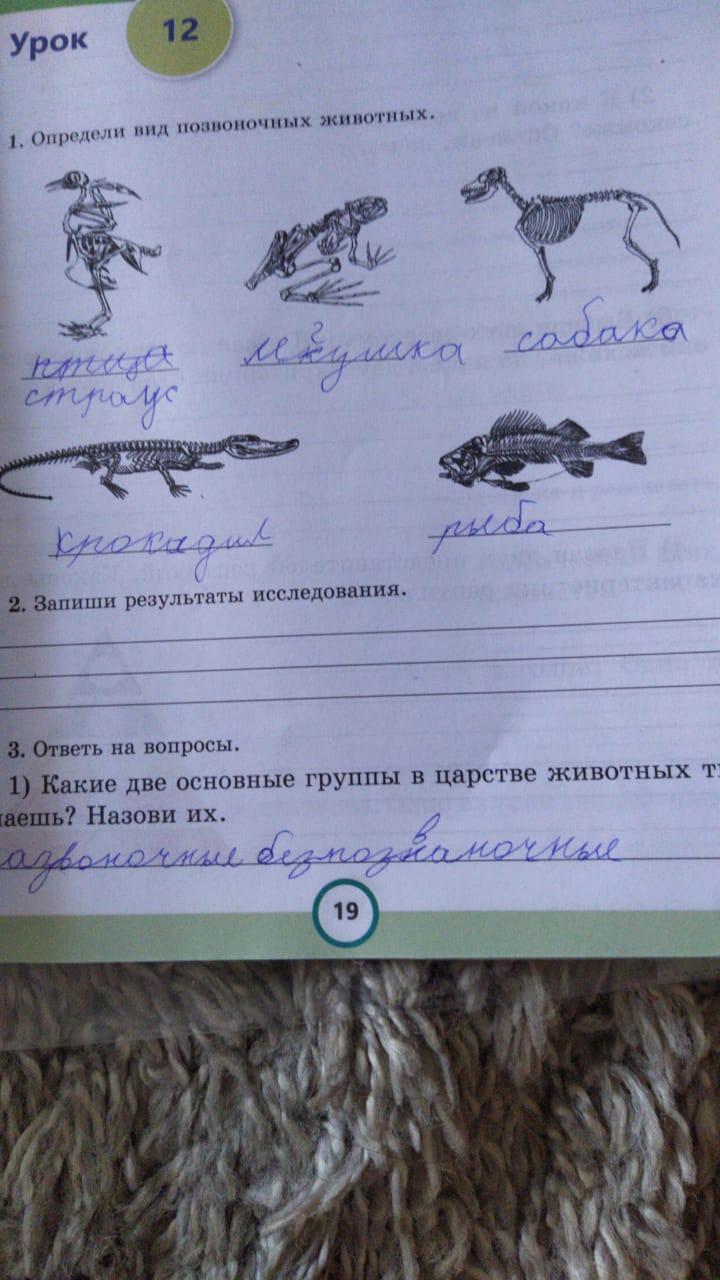 Урок 12
1. Определи вид позвоночных животных.
птица
страус
лягушка
собака
крокадил
рыба
2. Запиши результаты исследования.
3. Ответь на вопросы.
1) Какие две основные группы в царстве животных ты
наешь? Назови их.
азвоночные безпозваночные
19